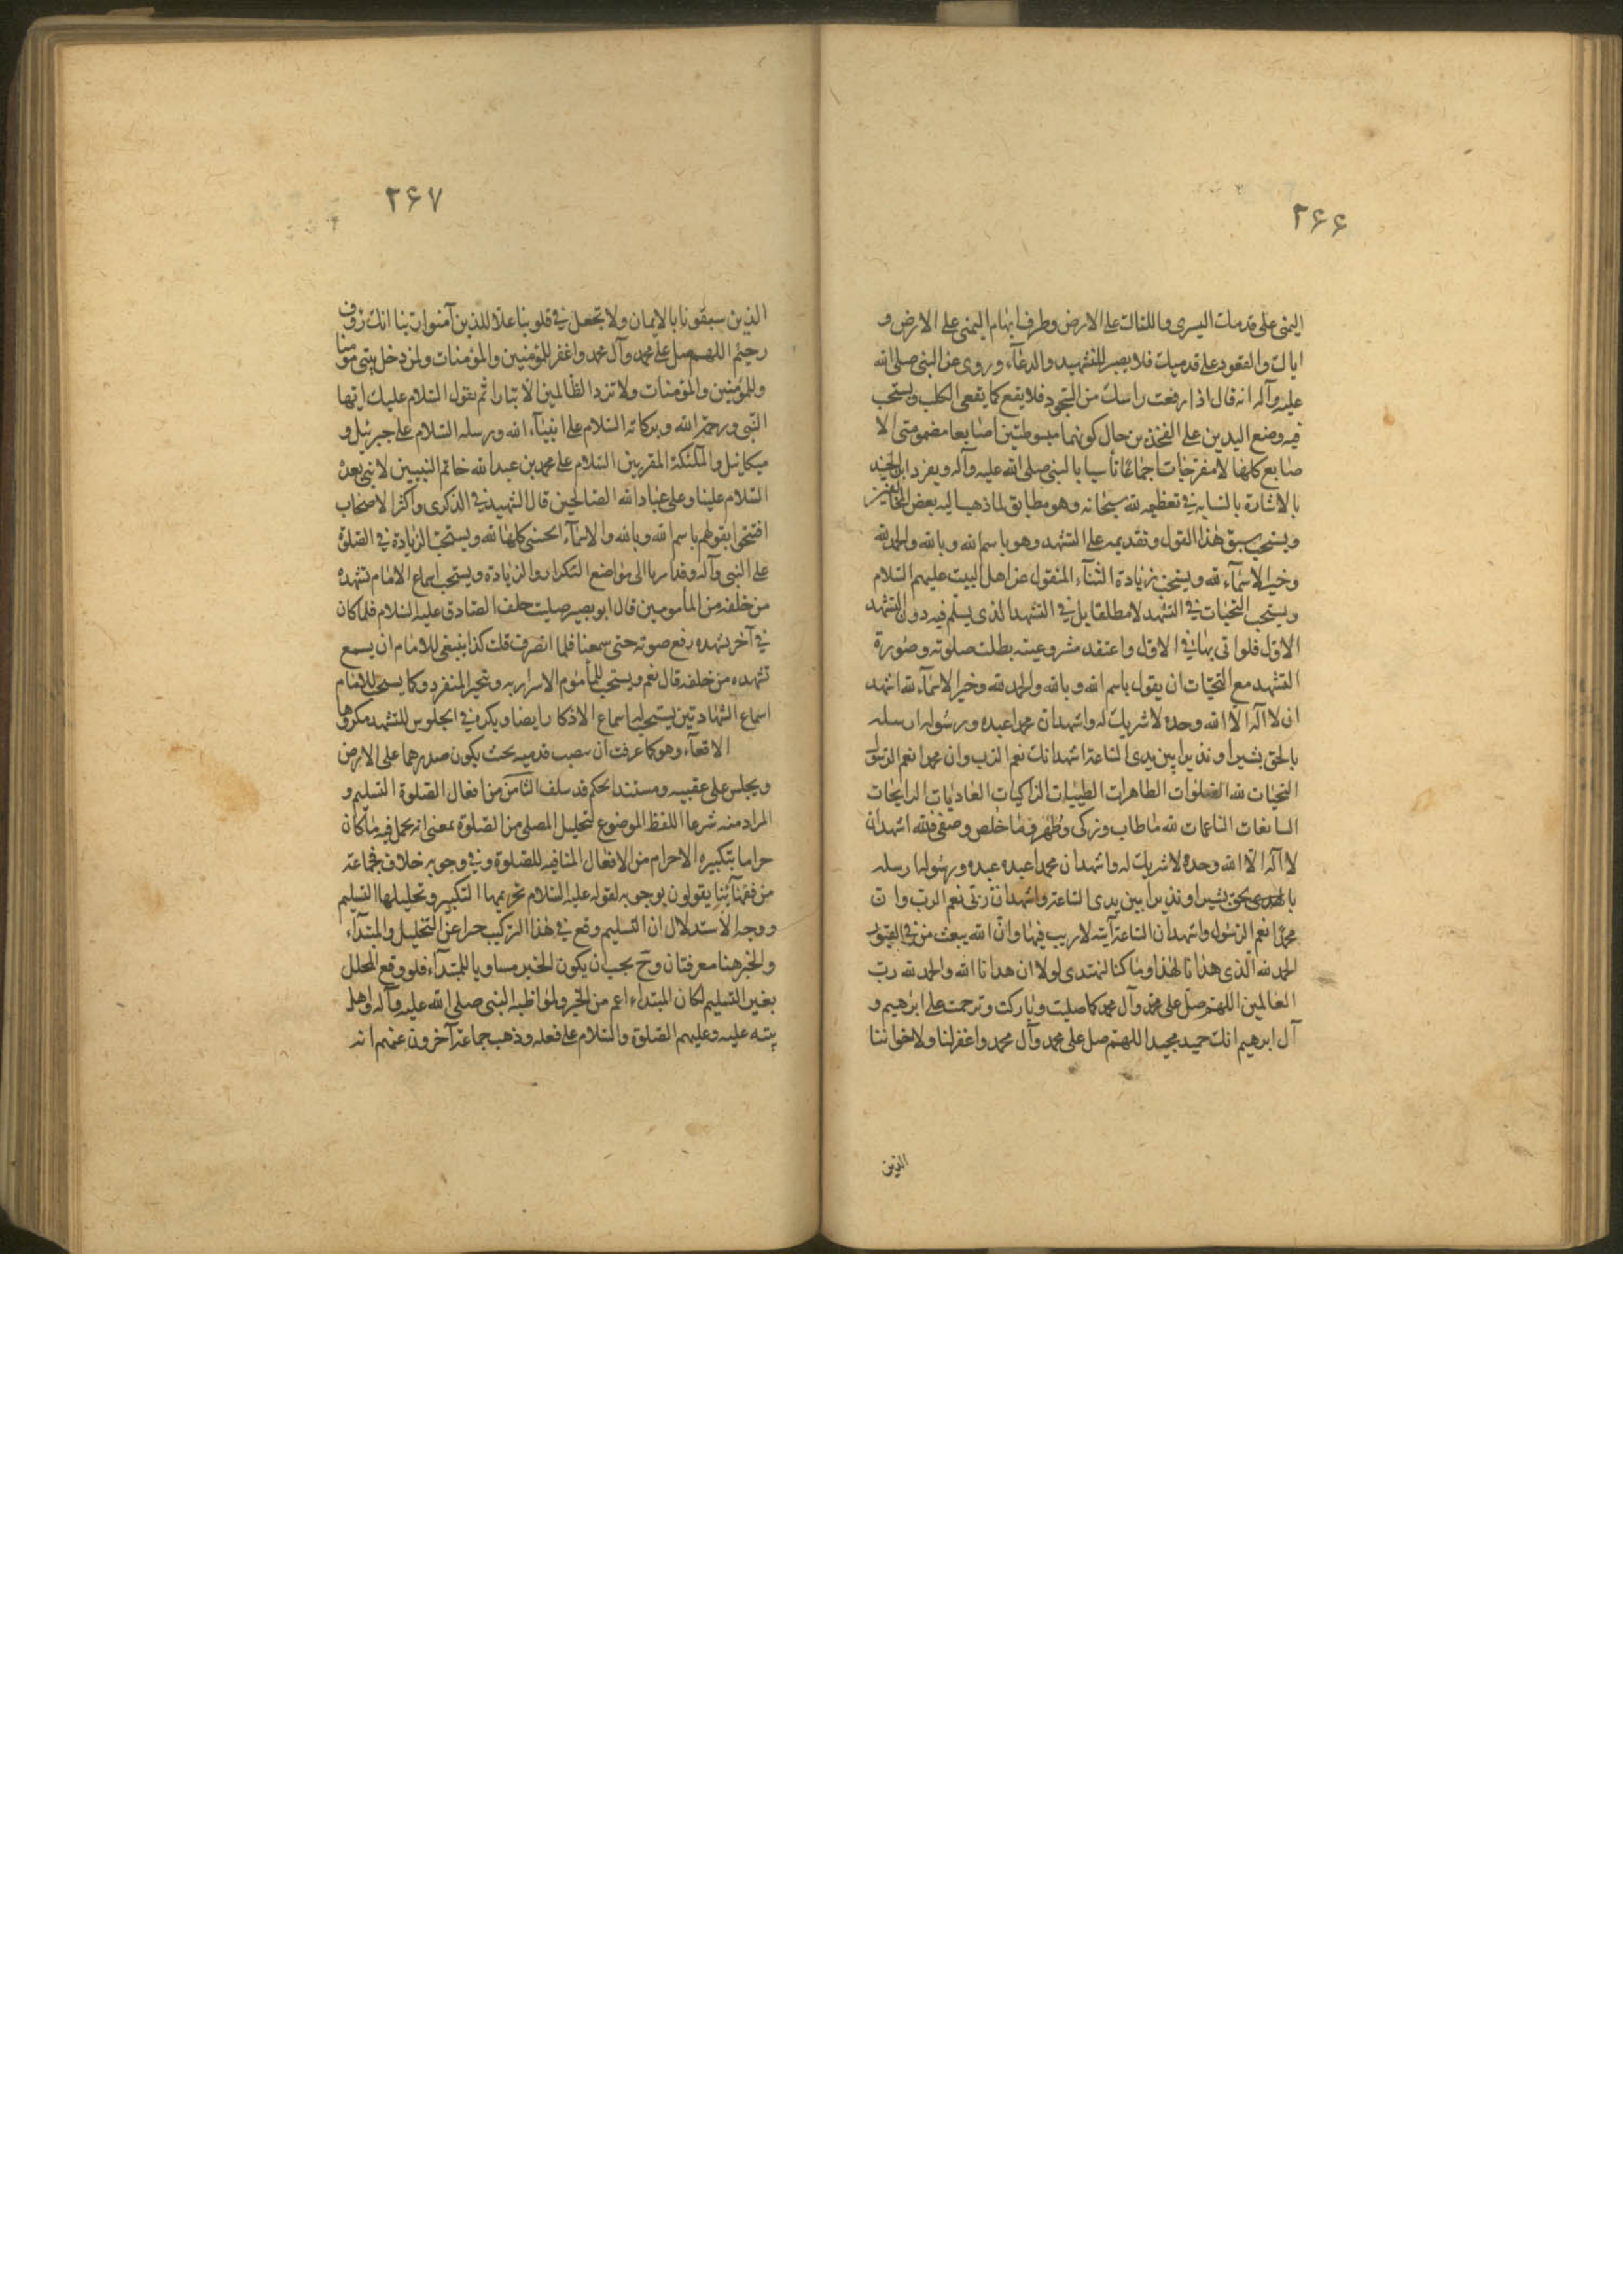 ۲۶۶
اليمنى على قدمك اليسرى واليتاك على الارض وطرف ابهام اليمنى على الارض و
اياك والقعود على قدميك فلا يصبر للتشهد والدعآء وروى عن النبى صلى الله
عليه وآله انه قال اذا رفعت راسك من السجود فلا يقع كما يقعى الكلب ويستحب
فيه وضع اليدين على الفخذين حال كونهما مبسوطتين اصابعا مضمومتى الا
صابع كلها لا مفرجات اجماعًا تأسيا بالنبى صلى الله عليه وآله ويفرد ابن الجنيد
بالاشارة بالسبابة فى تعظيمه لله سبحانه وهو مطابق لما ذهب اليه بعض المخالفين
ويستحب سبق هذا القول وتقديمه على التشهد وهو باسم الله وبالله والحمد لله
وخير الاسمآء لله ويستحب زيادة الثنآء المنقول عن اهل البيت عليهم السلام
ويستحب التحيات فى التشهد لا مطلقا بل فى التشهد الذى يسلم فيه دون التشهد
الاول فلو اتى بها فى الاول واعتقد مشروعيته بطلت صلوته وصورة
التشهد مع التحيات ان يقول باسم الله وبالله والحمد لله وخير الاسمآء لله اشهد
ان لا اله الا الله وحده لا شريك له واشهد ان محمدا عبده ورسوله ارسله
بالحق بشيرا ونذيرا بين يدى الساعة اشهد انك نعم الرب وان محمدا نعم الرسول
التحيات لله الصلوات الطاهرات الطيبات الزاكيات الغاديات الرايحات
السابغات الناعمات لله ماطاب وزكى وطهر وما خلص وصفى فلله اشهد ان
لا اله الا الله وحده لا شريك له واشهد ان محمدا عبده عبده ورسوله ارسله
بالهدى بحق بشيرا ونذيرا بين يدى الساعة واشهد ان ربى نعم الرب وان
محمدا نعم الرسول واشهد ان الساعة آتية لا ريب فيها وان الله يبعث من فى القبور
الحمد لله الذى هذانا لهذا وما كنا لنهتدى لولا ان هدانا الله والحمد لله رب
العالمين اللهم صل على محمد وآل محمد كما صليت وباركت وترحمت على ابرهيم و
آل ابرهيم انك حميد مجيد اللهم صل على محمد وآل محمد واغفر لنا ولاخواننا
الذين
۲۶۷
الذين سبقونا بالايمان ولا تجعل فى قلوبنا غلا للذين آمنوا ربنا انك رؤف
رحيم اللهم صل على محمد وآل محمد واغفر للمؤمنين والمؤمنات ولمن دخل بيتى مؤمنا
وللمؤمنين والمؤمنات ولا تزد الظالمين الا تبارا ثم يقول السلام عليك ايها
النبى ورحمة الله وبركاته السلام على انبيآء الله ورسله السلام على جبرئيل و
ميكائيل والملئكة المقربين السلام على محمد بن عبد الله خاتم النبيين لا نبى بعده
السلام علينا وعلى عباد الله الصالحين قال الشهيد فى الذكرى واكثر الاصحاب
افتتحوا بقولهم باسم الله وبالله والاسمآء الحسنى كلها لله ويستحب الزيادة فى الصلوة
على النبى وآله وقد امر بها الى مواضع التكرار والزيادة ويستحب اسماع الامام تشهده
من خلفه من المأمومين قال ابو بصير صليت خلف الصادق عليه السلام فلما كان
فى آخر تشهده رفع صوته حتى سمعنا فلما انصرف قلت كذا ينبغى للامام ان يسمع
تشهده من خلفه قال نعم ويستحب للمأموم الاسرار به ويتخير المنفرد وكما يستحب للامام
اسماع الشهادتين يستحب له اسماع الاذكار ايضا ويكره فى الجلوس للتشهد مكروها
الاقعآء وهو كما عرفت ان ينصب قدميه بحيث يكون صدرهما على الارض
ويجلس على عقبيه ومستند الحكم قد سلف الثامن من افعال الصلوة التسليم و
المراد منه شرعا اللفظ الموضوع لتحليل المصلى من الصلوة بمعنى انه يحل فيه ما كان
حراما بتكبيرة الاحرام من الافعال المنافية للصلوة وفى وجوبه خلاف فجماعة
من فقهآئنا يقولون بوجوبه لقوله عليه السلام تحريمها التكبير وتحليلها التسليم
ووجه الاستدلال ان التسليم وقع فى هذا التركيب خبرا عن التحليل والمبتدآء
والخبر هنا معرفتان وح يجب ان يكون الخبر مساويا للمبتدآء فلو وقع المحلل
بغير التسليم لكان المبتداء اعم من الخبر ولمواظبة النبى صلى الله عليه وآله واهل
بيته عليه وعليهم الصلوة والسلام على فعله وذهب جماعة آخرون عنهم انه